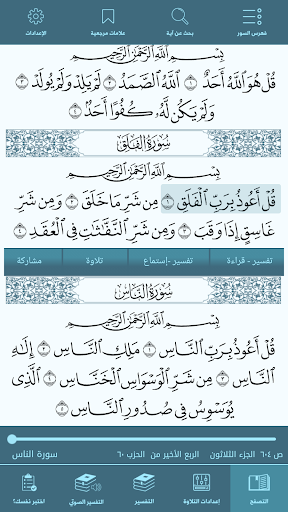 فهرس السور
بحث عن آية
علامات مرجعية
الإعدادات
بِسْمِ ٱللَّهِ ٱلرَّحْمَٰنِ ٱلرَّحِيمِ
قُلْ هُوَ ٱللَّهُ أَحَدٌ ١ ٱللَّهُ ٱلصَّمَدُ ٢ لَمْ يَلِدْ وَلَمْ يُولَدْ ٣
وَلَمْ يَكُن لَّهُۥ كُفُوًا أَحَدٌۢ ٤
سُورَةُ الفَلَقِ
بِسْمِ ٱللَّهِ ٱلرَّحْمَٰنِ ٱلرَّحِيمِ
قُلْ أَعُوذُ بِرَبِّ ٱلْفَلَقِ ١ مِن شَرِّ مَا خَلَقَ ٢ وَمِن شَرِّ
غَاسِقٍ إِذَا وَقَبَ ٣ وَمِن شَرِّ ٱلنَّفَّٰثَٰتِ فِى ٱلْعُقَدِ ٤
تفسير - قراءة
تفسير -إستماع
تلاوة
مشاركة
سُورَةُ النَّاسِ
بِسْمِ ٱللَّهِ ٱلرَّحْمَٰنِ ٱلرَّحِيمِ
قُلْ أَعُوذُ بِرَبِّ ٱلنَّاسِ ١ مَلِكِ ٱلنَّاسِ ٢ إِلَٰهِ
ٱلنَّاسِ ٣ مِن شَرِّ ٱلْوَسْوَاسِ ٱلْخَنَّاسِ ٤ ٱلَّذِى
يُوَسْوِسُ فِى صُدُورِ ٱلنَّاسِ
ص ٦٠٤ الجزء الثلاثون الربع الأخير من الحزب ٦٠ سورة الناس
التصفح
إعدادات التلاوة
التفسير
التفسير الصوتي
اختبر نفسك؟